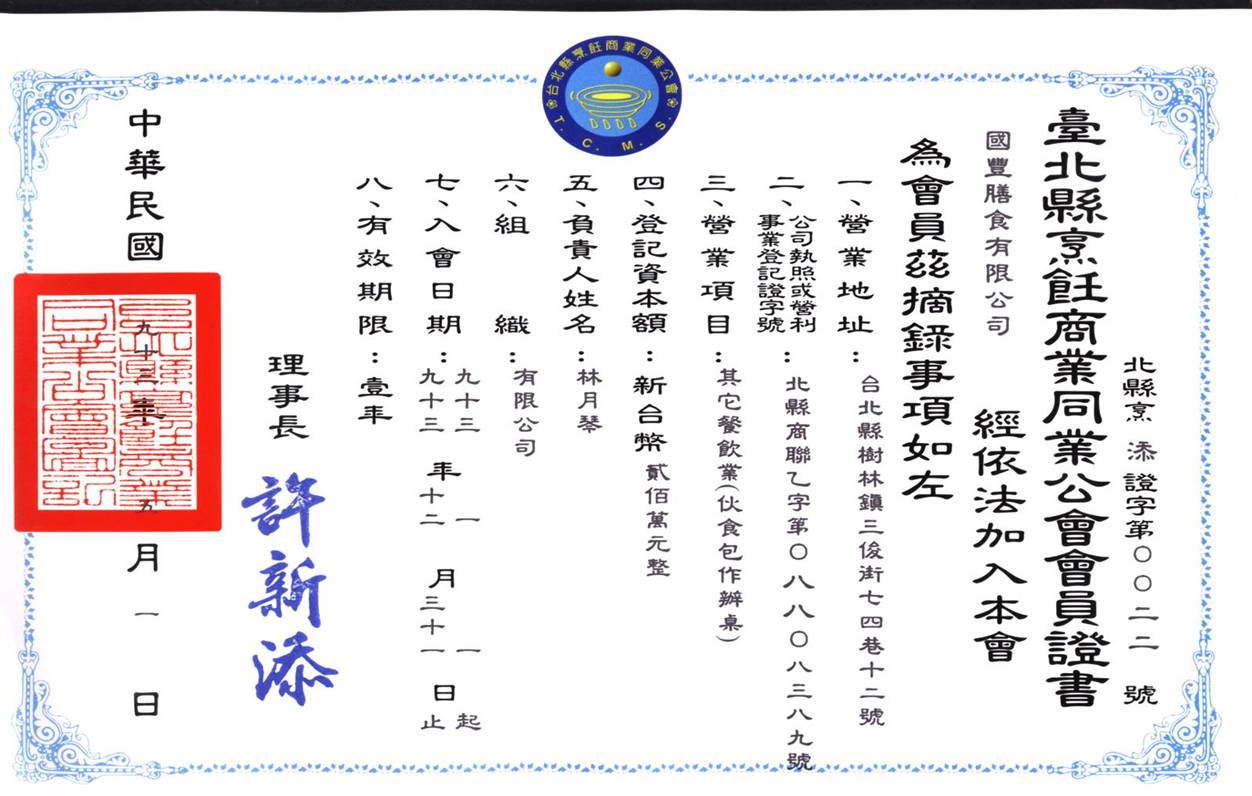 台北縣烹飪商業同業公會
T. C. M. S.
北縣烹 添 證字第〇〇二二 號
臺北縣烹飪商業同業公會會員證書
國豐膳食有限公司 經依法加入本會
為會員茲摘錄事項如左
一、營業地址：台北縣樹林鎮三俊街七四巷十二號
二、公司執照或營利事業登記證字號：北縣商聯乙字第〇八八〇八三八九號
三、營業項目：其它餐飲業(伙食包作辦桌)
四、登記資本額：新台幣 貳佰萬元整
五、負責人姓名：林月琴
六、組 織：有限公司
七、入會日期：九十三 年 一 月 一 日起
九十三 年十二 月三十一 日止
八、有效期限：壹年
理事長 許新添
中華民國 九十三年 五 月 一 日